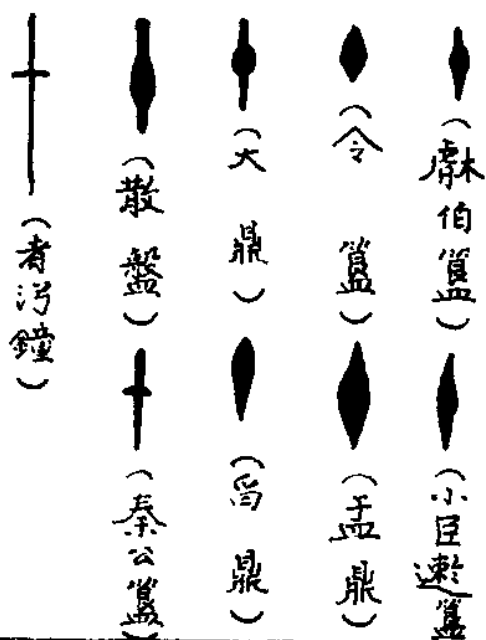 (伯簋)
(小臣簋)
(令簋)
(盂鼎)
(大鼎)
(舀鼎)
(散盤)
(秦公簋)
(者汈鐘)